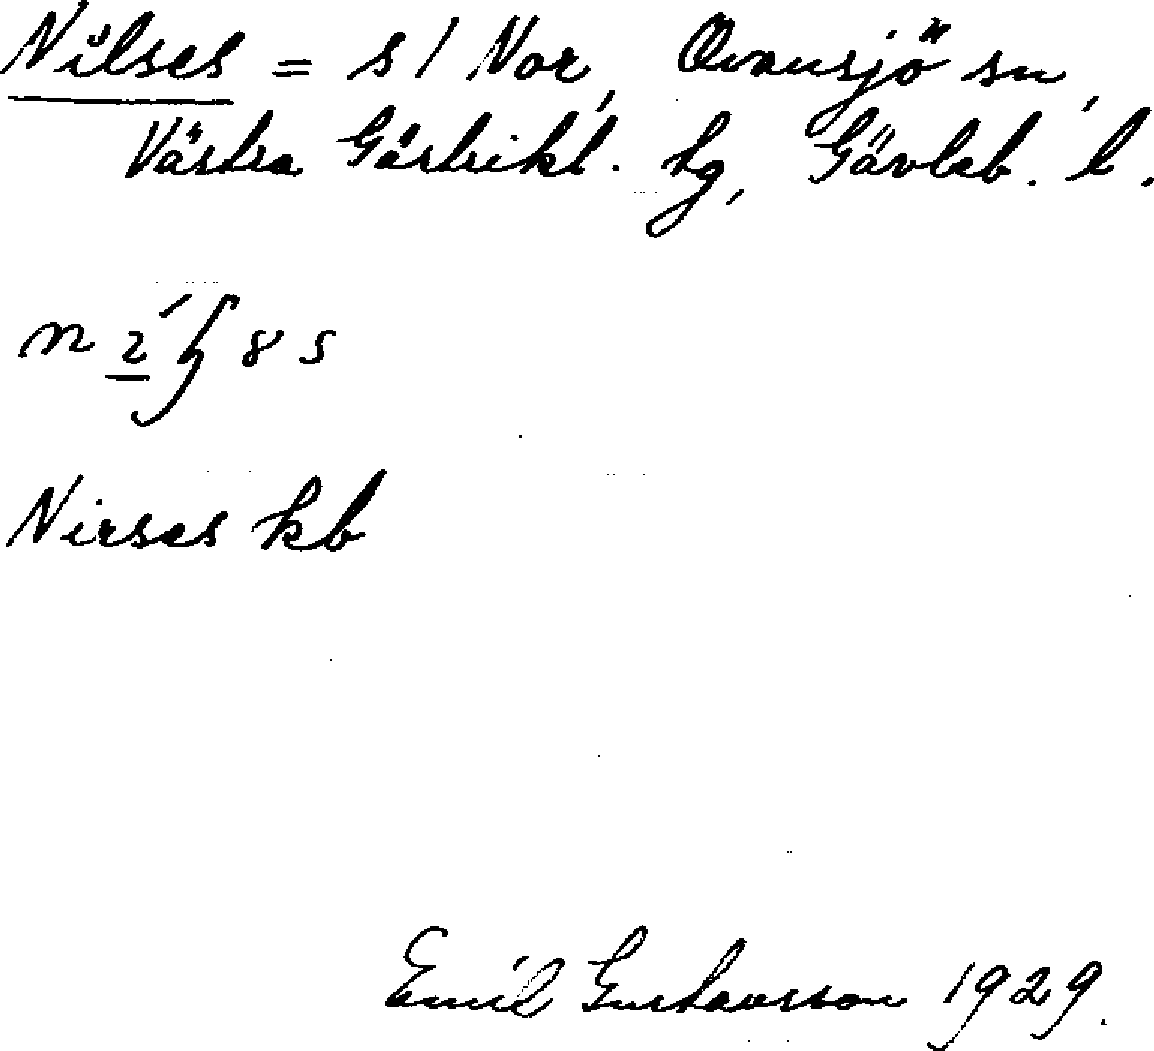 Nilses = s / Nor, Ovansjö sn,
Västra Gästrikl. tg, Gävleb. l.
Nirses kb
Emil Gustavsson 1929.